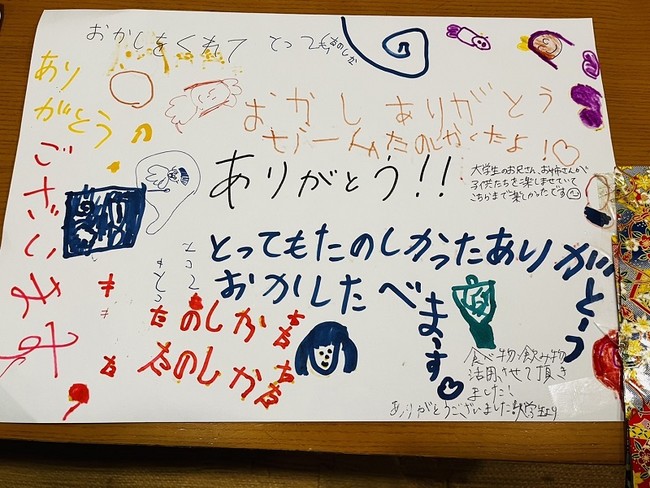 おかしをくれて とってもたのしか
あり
がとう
ございます
おかしありがとう
ぜーんぶたのしかくたよ!♡
ありがとう!!
大学生のお兄さん、お姉さんが
子供たちを楽しませていて
こちらまで楽しかったです
とってもたのしかったありがとーう
おかしたべまーす♡
とっても
たのしか
たのしか
食べ物、飲み物
活用させて頂き
ました!
ありがとうございました